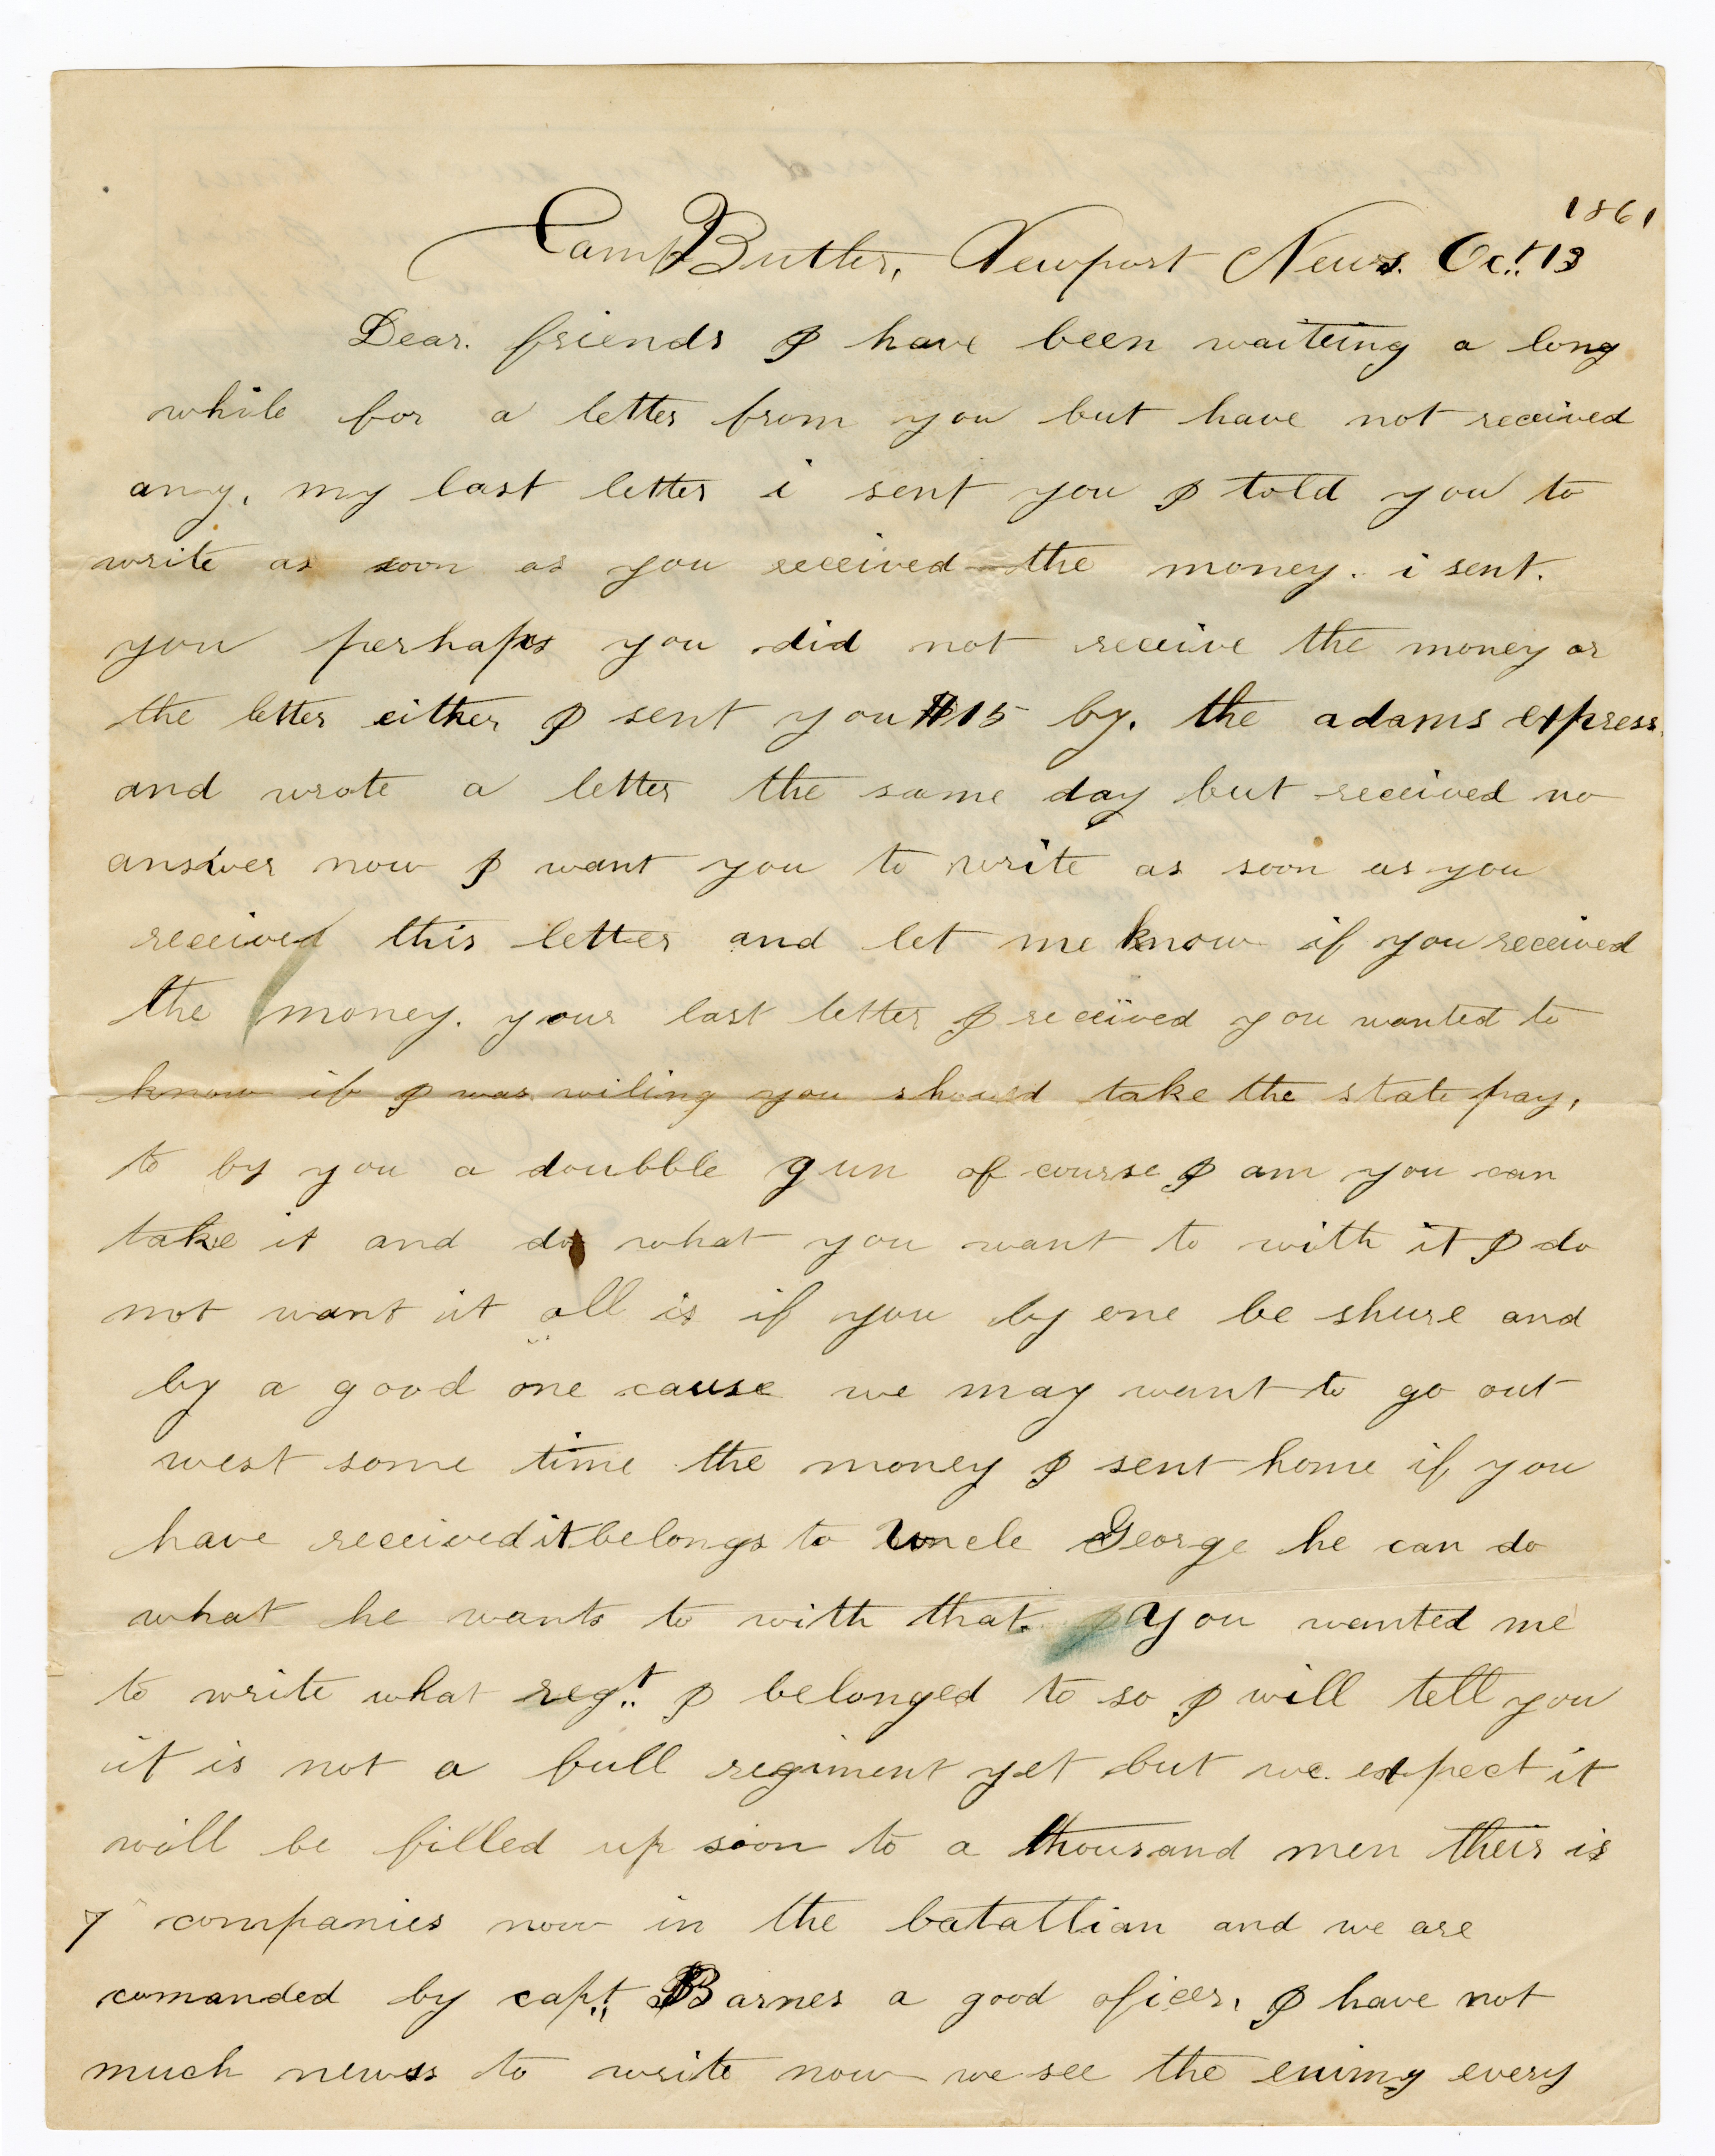 1861
Camp Butler, Newport News. Oct. 13
Dear. friends I have been waiteing a long
while for a letter from you but have not received
any, my last letter i sent you I told you to
write as soon as you received the money. i sent.
you perhaps you did not receive the money or
the letter either I sent you $15 by. the adams express.
and wrote a letter the same day but received no
answer now I want you to write as soon as you
received this letter and let me know if you received
the money. your last letter I received you wanted to
know if I was wiling you should take the state pay,
to by you a doubble gun of course I am you can
take it and do what you want to with it I do
not want it all is if you by one be shure and
by a good one cause we may want to go out
west some time the money I sent home if you
have received it belongs to Uncle George he can do
what he wants to with that. you wanted me
to write what regt. I belonged to so I will tell you
it is not a full regiment yet but we expect it
will be filled up soon to a thousand men their is
7 companies now in the batattlian and we are
comanded by capt. Barnes a good oficer, I have not
much newss to write now we see the enimy every